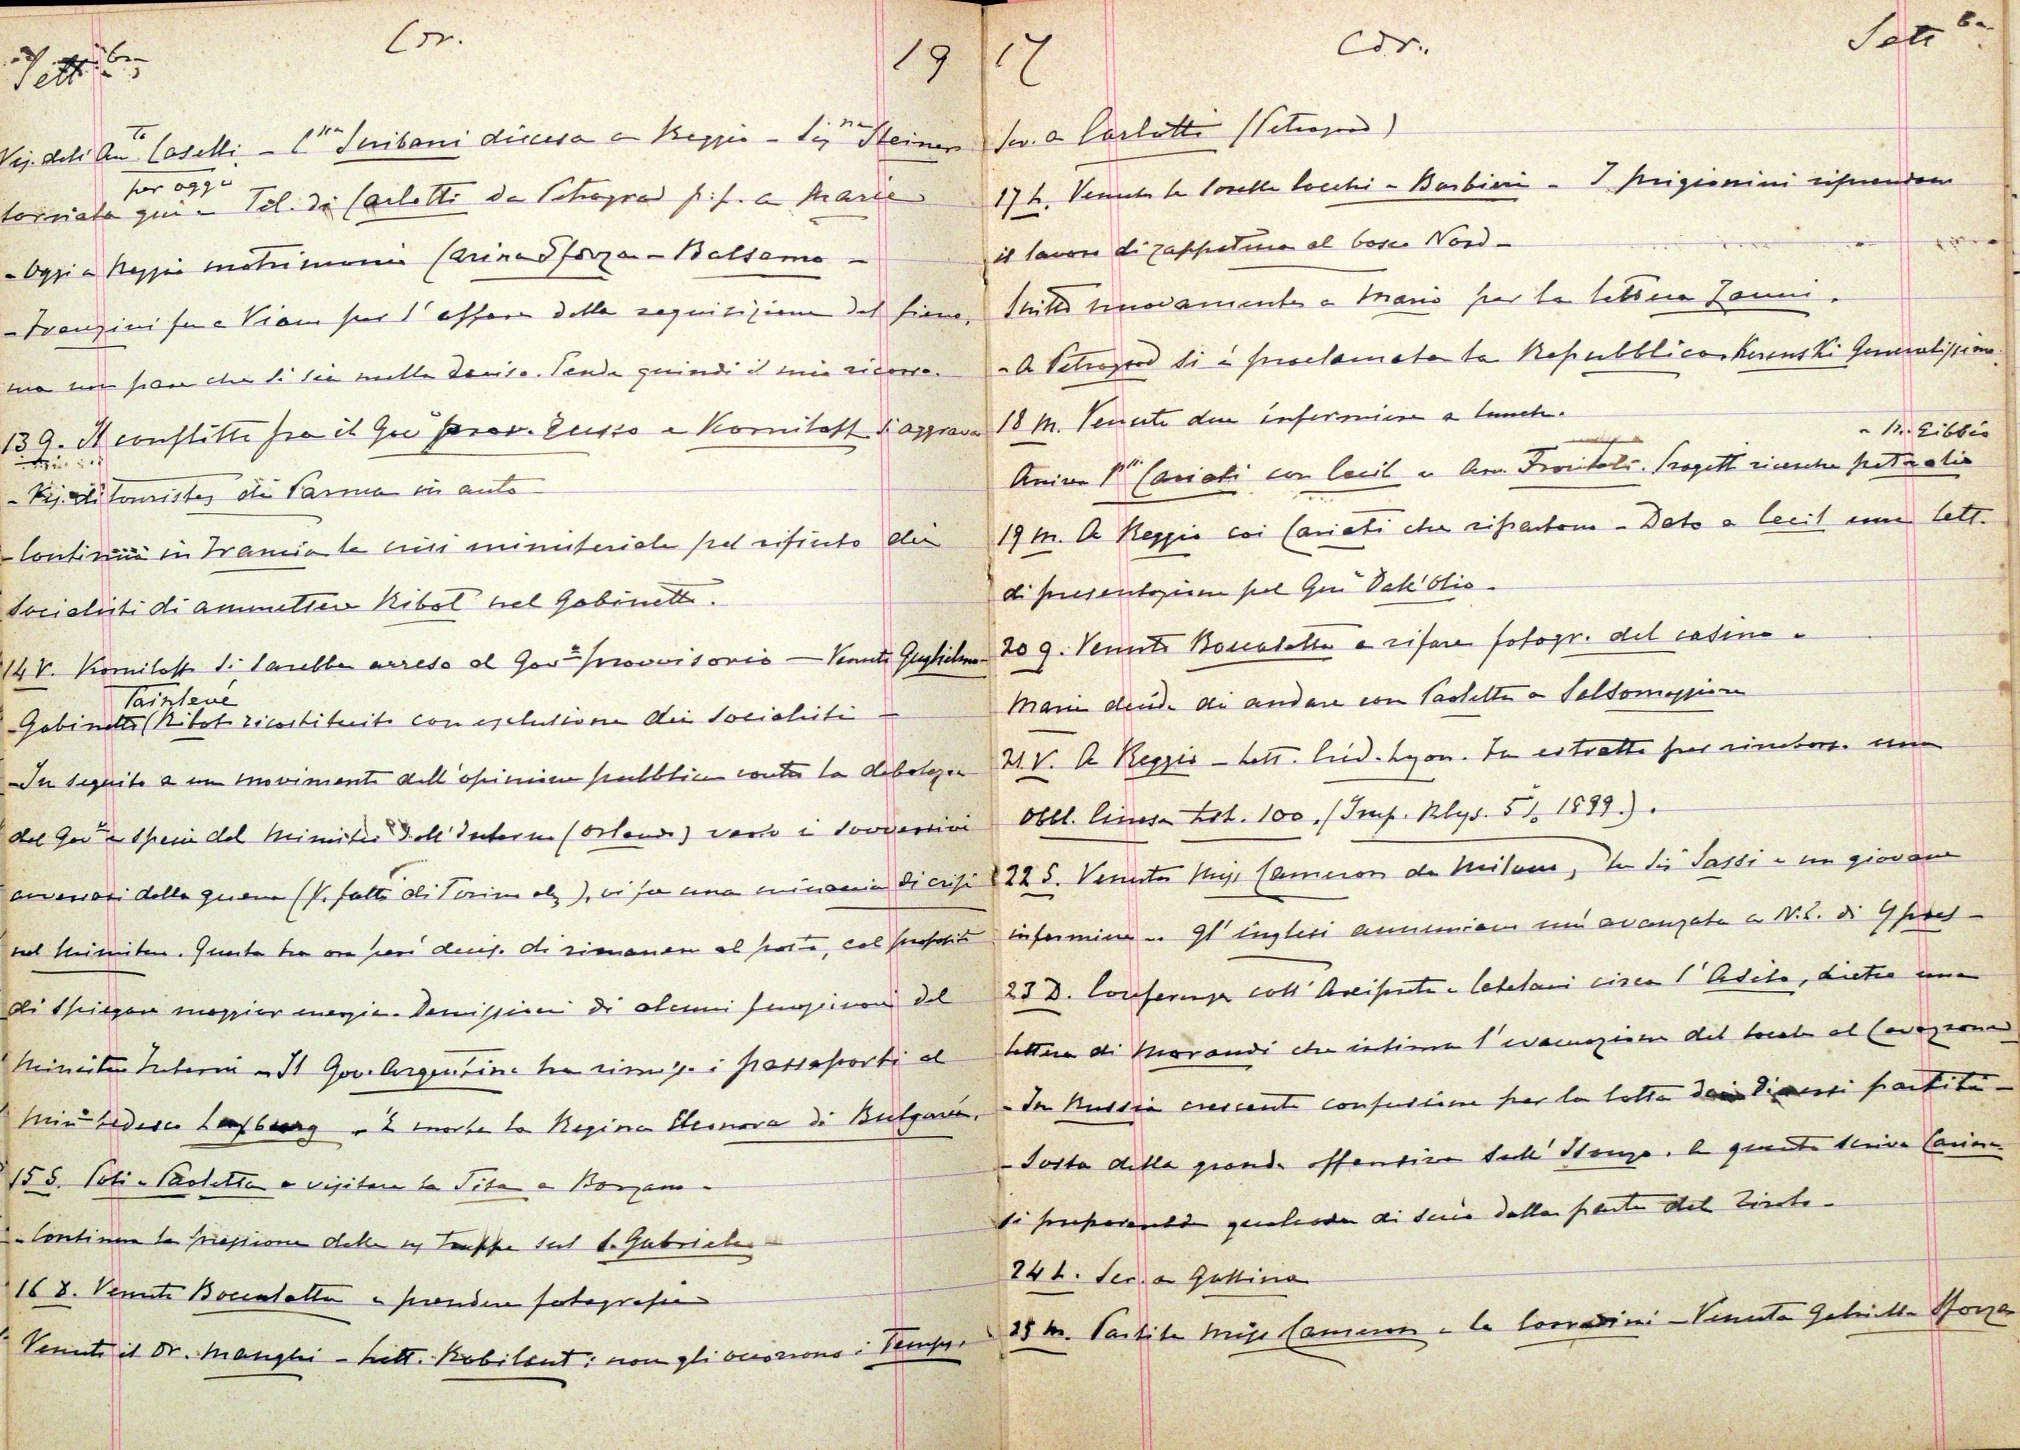 Settbre
Cor.
19
Vis. deli Avv.to Caselli. - C.ssa Scribani discesa a Reggio - Sig.na Steiner
per oggi
tornata qui - Tel. di Carlotti da Petrograd p. f. a Marie
- Oggi a Reggio matrimonio Carina Sforza - Balsamo -
- Franzini fu a Viano per l'affare della requisizione del fieno,
ma non pare che si sia nulla deciso. Pende quindi il mio ricorso.
13 G. Il conflitto fra il Gov.o prov. russo e Korniloff s'aggrava
- Vis. di touristes di Parma in auto -
- Continua in Francia la crisi ministeriale pel rifiuto dei
socialisti di ammettere Ribot nel Gabinetto.
14 V. Korniloff si sarebbe arreso al Gov.o provvisorio - Venuto Guglielmo -
Painlevé
- Gabinetto (Ribot ricostituito con esclusione dei socialisti -
- In seguito a un movimento dell'opinione pubblica contro la debolezza
del Gov.o e specie del Ministro dell'Interno (Orlando) verso i sovversivi
avversari della guerra (V. fatti di Torino etc), vi fu una minaccia di crisi
nel Ministero. Questo ha ora però deciso di rimanere al posto, col proposito
di spiegare maggior energia. Demissioni di alcuni funzionari del
Ministero Interni - Il Gov. Argentino ha rimesso i passaporti al
Min.o tedesco Luxburg. - È morta la Regina Eleonora di Bulgaria.
15 S. Poli - Paoletta a visitare la Tita a Borzano -
- Continua la pressione delle ns truppe sul S. Gabriele -
16 D. Venuto Boccaletta a prendere fotografie
Venuto il Dr. Manghi - Lett. Robilant: non gli occorrono i Temps.
17
Cor.
Settbre
Scr. a Carlotti (Petrograd)
17 L. Venute le sorelle Cocchi - Barbieri - I prigionieri riprendono
il lavoro di zappatura al bosco Nord -
Scritto nuovamente a Mario per la lettera Zanni.
- A Petrograd si è proclamata la Repubblica. Kerenski Generalissimo.
18 M. Venute due infermiere a lunch.
- M. Gibbio
Arriva P.ssa Cariati con Cecil e Avv. Frontali. Progetti ricerche petrolio
19 M. A Reggio coi Cariati che ripartono - Dato a Cecil una lett.
di presentazione pel Gen.e Dall'Olio -
20 G. Venuto Boccaletta a rifare fotogr. del casino -
Marie decide di andare con Paoletta a Salsomaggiore
21 V. A Reggio - Lett. Créd. Lyon. Fu estratta per rimbors. una
Obbl. Cinese Lst. 100. (Imp. Rlys. 5% 1899.).
22 S. Venuta Miss Cameron da Milano, la Sig. Sassi e un giovane
infermiere - Gl'inglesi annunciano un'avanzata a N.E. di Ypres -
23 D. Conferenza coll'Arciprete e Catelani circa l'Asilo, dietro una
lettera di Morandi che intima l'evacuazione del locale al Cavazzone
- In Russia crescente confusione per la lotta dei diversi partiti -
- Sosta della grande offensiva sull'Isonzo. A quanto scrive Carina
si preparerebbe qualcosa di serio dalla parte del Tirolo -
24 L. Scr. a Gattina
25 M. Partita Miss Cameron e la Corradini - Venuta Gabriella Sforza